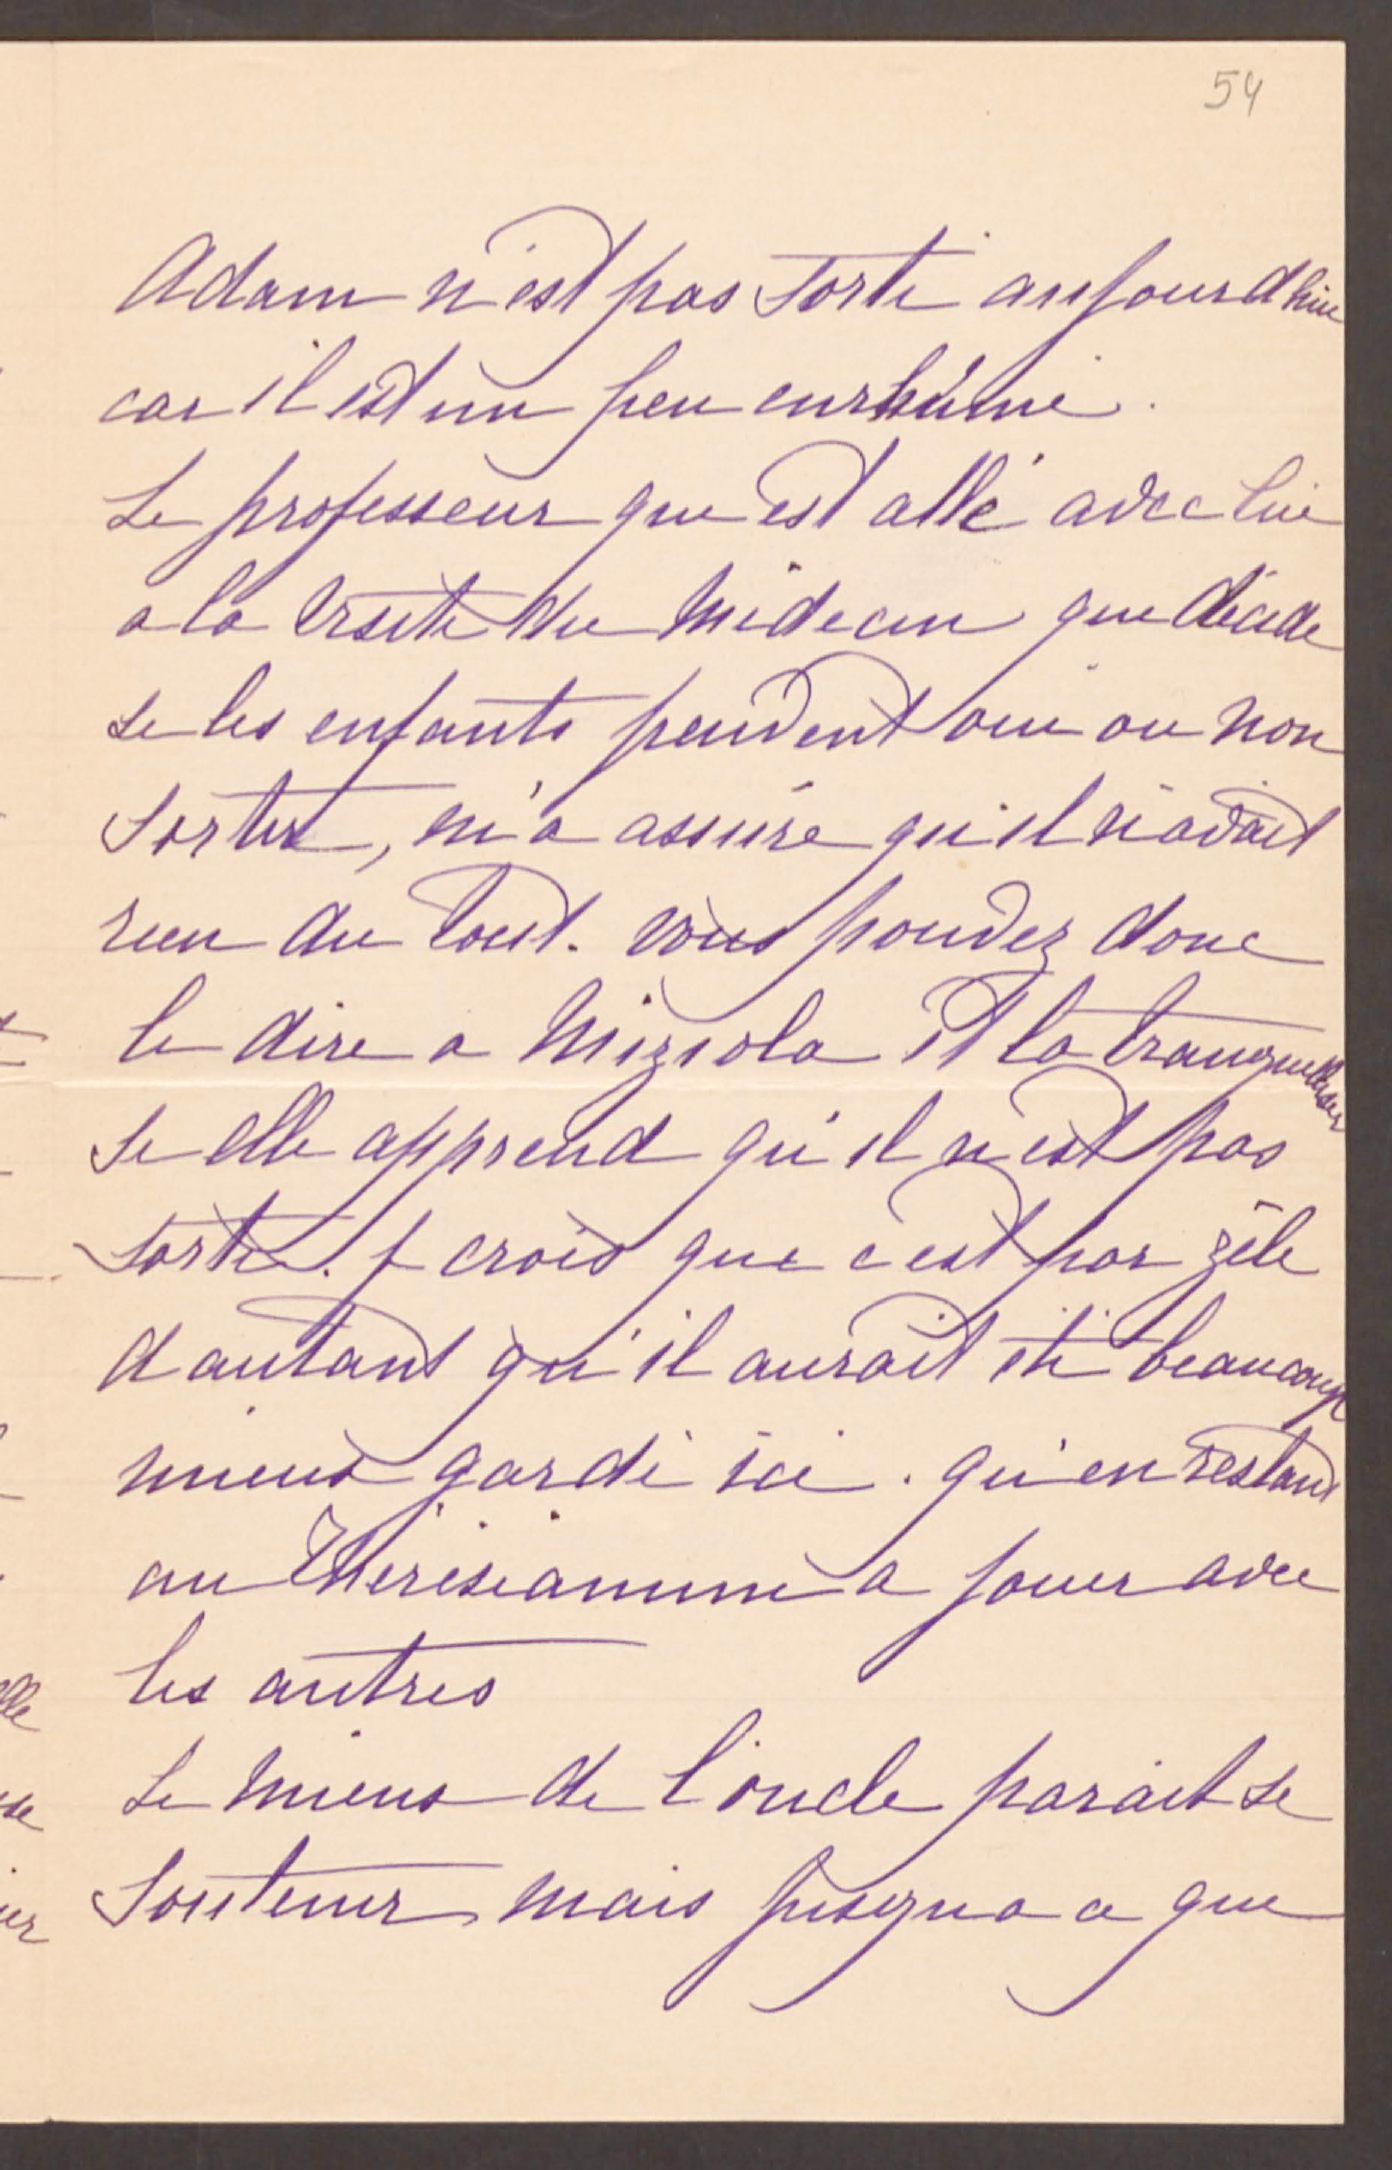 54
Adam n'est pas sorti aujourd'hui
car il est un peu enrhumé.
Le professeur qui est allé avec lui
a la visite du Médecin qui décide
si les enfants peuvent oui ou non
sortir, m'a assuré qu'il n'avait
rien du tout. vous pouvez donc
le dire a Miziola et la tranquilliser
si elle apprend qu'il n'est pas
sorti. J crois que c'est par zèle
d'autant qu'il aurait été beaucoup
mieux gardé ici. qu'en restant
au Theresianum a jouer avec
les autres
Le mieux de l'oncle parait se
soutenir mais jusqua a que